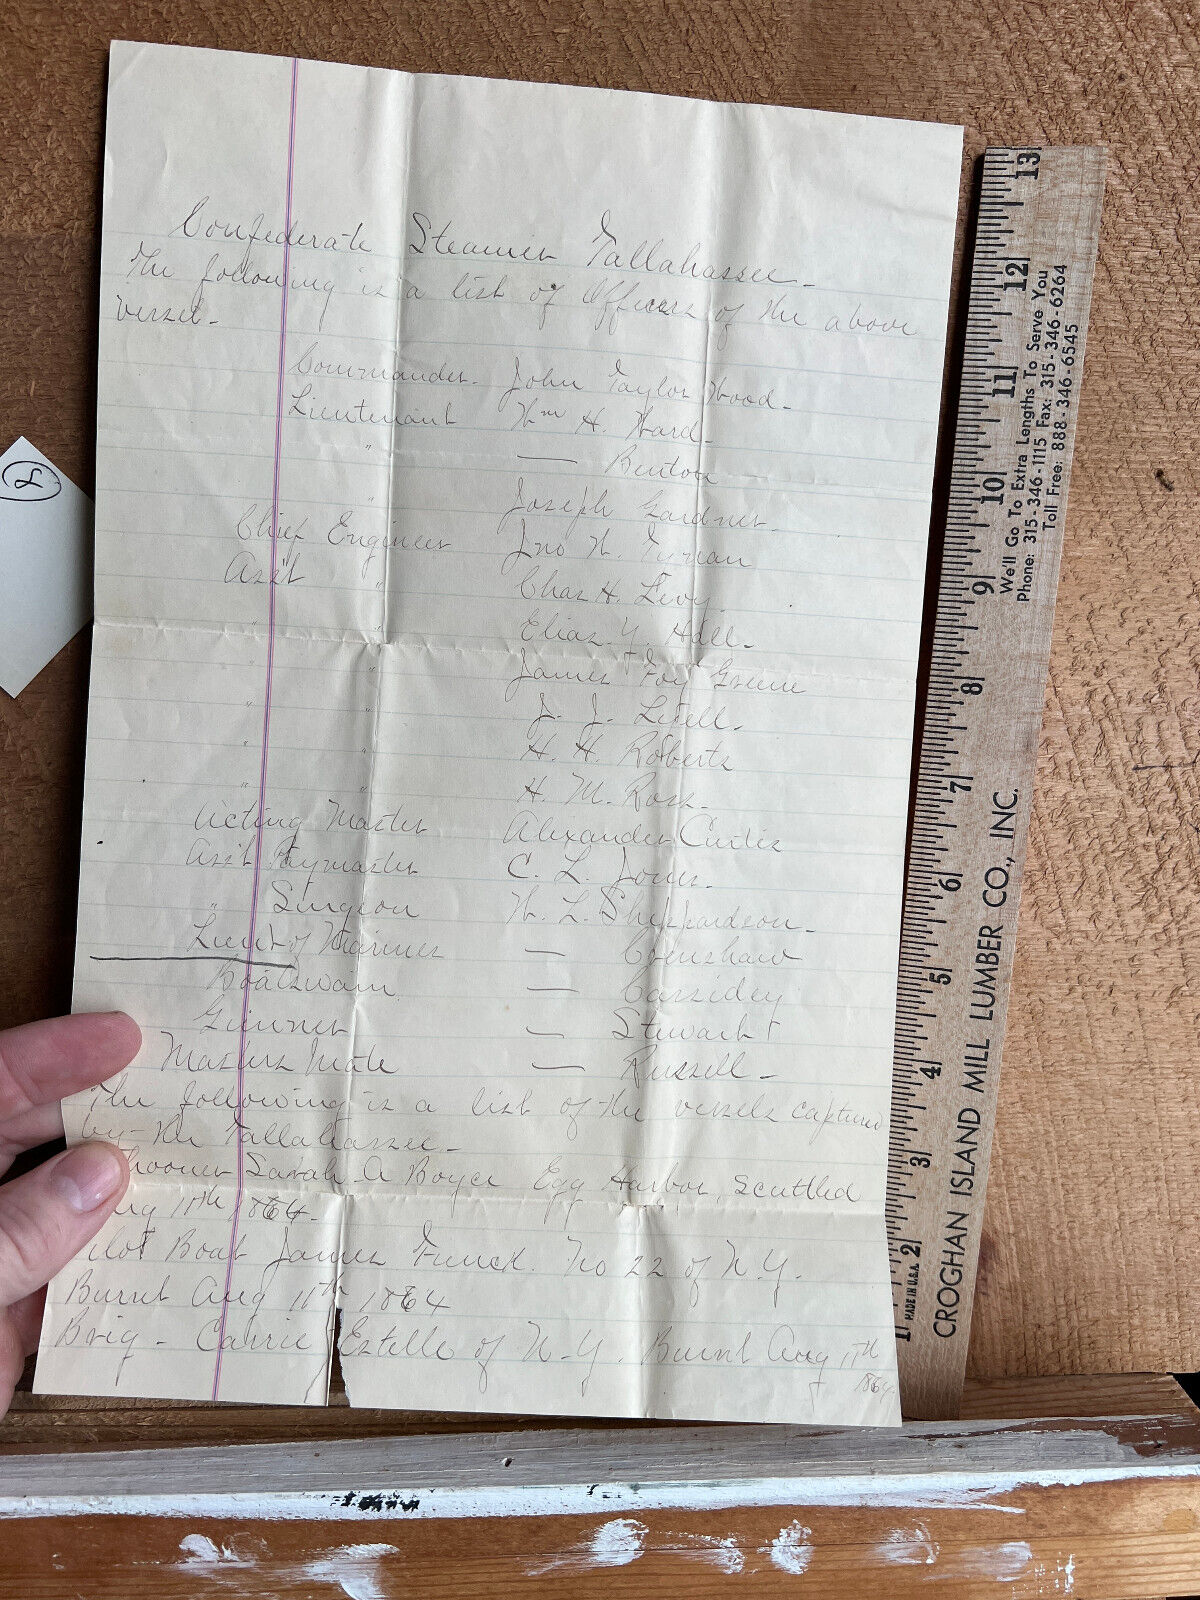 Confederate Steamer Tallahassee.
The following is a list of Officers of the above
vessel.
Commander. John Taylor Wood.
Lieutenant Wm H Ward.
" — Benton
" Joseph Gardner.
Chief Engineer Jno W. Tynan
Ass't " Chas H. Levy.
" " Elias G. Hall.
" James Foy Greene
" " J. J. Litell.
" " H. H. Roberts
" " H. M. Ross.
Acting Master Alexander Curtis
Ass't Paymaster C. L. Jones.
" Surgeon W. L. Sheppardson.
Lieut of Marines — Crenshaw
Boatswain. — Cassidey
Gunner — Stewart
Masters Mate — Russell -
The following is a list of the vessels captured
by the Tallahassee.
hooner Sarah A Boyce Egg Harbor, Scuttled
ug 11th 1864.
ilot Boat James Funck. No 22 of N.Y.
Burnt Aug 11th 1864
Brig - Carrie Estelle of N-Y. Burnt Aug 11th
1864.
2
13
12
11
10
9
8
7
6
5
4
3
2
1
We'll Go To Extra Lengths To Serve You
Phone: 315-346-1115 Fax: 315-346-6264
Toll Free: 888-346-6545
CROGHAN ISLAND MILL LUMBER CO., INC.
MADE IN U.S.A.